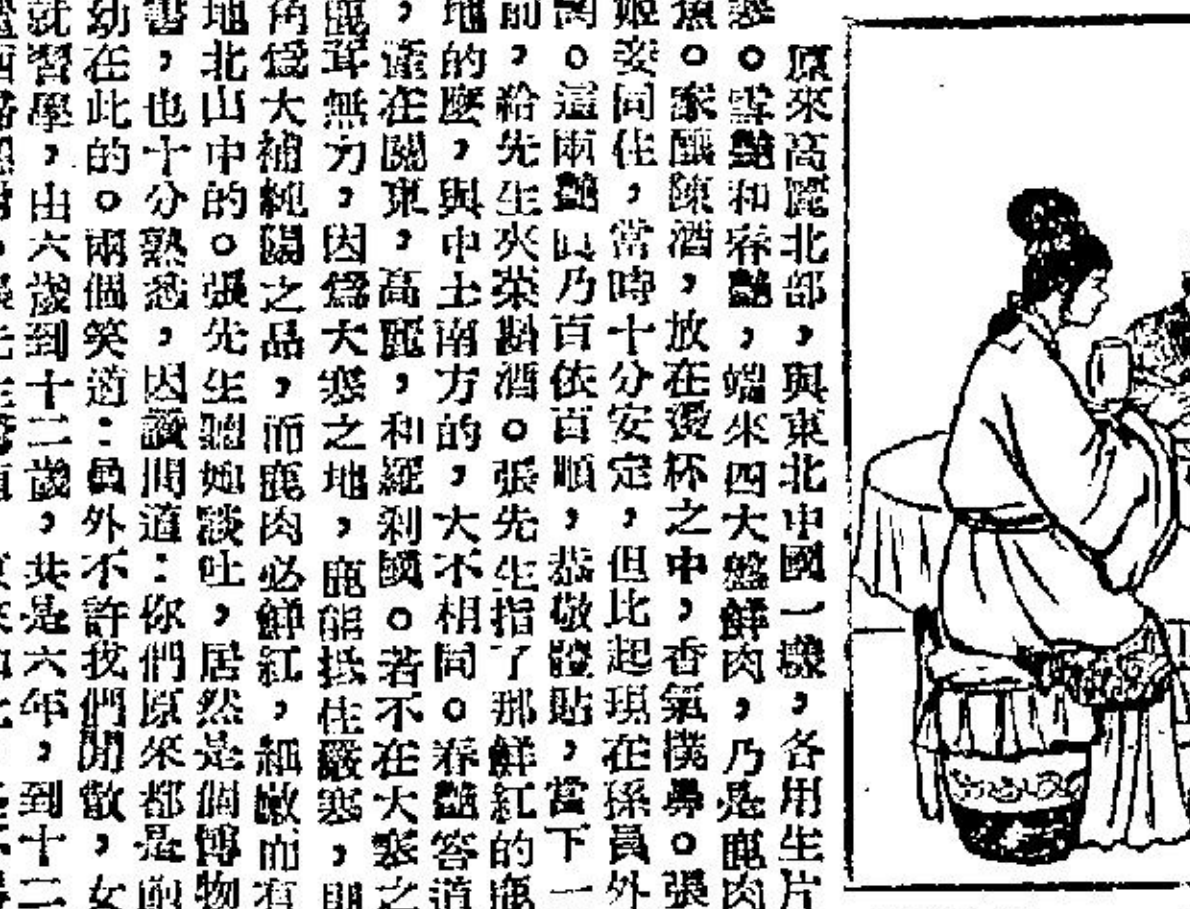 原來高麗北部，與東北中國一樣，各用生片
。雪艷和春艷，端來四大盤鮮肉，乃是鹿肉
魚。家釀陳酒，放在燙杯之中，香氣撲鼻。張
姬妾同住，當時十分安定，但比起現在孫員外
。這兩艷眞乃百依百順，恭敬體貼，當下一
前，給先生夾菜斟酒。張先生指了那鮮紅的鹿
地的麼，與中土南方的，大不相同。春艷答道
，產在關東，高麗，和羅刹國。若不在大寒之
鹿茸無力，因爲大寒之地，鹿能抵住嚴寒，則
角爲大補純陽之品，而鹿肉必鮮紅，細嫩而有
地北山中的。張先生聽她談吐，居然是個博物
書，也十分熟悉，因讚問道：你們原來都是
幼在此的。兩個笑道：員外不許我們閒散，女
就習學，由六歲到十二歲，共是六年，到十二